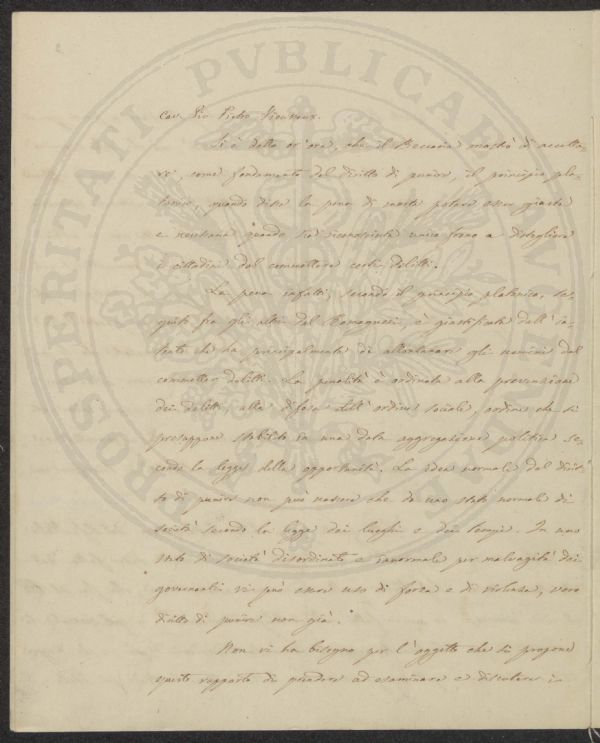 cav. Gio Pietro Vieusseux.
Si è detto or'ora, che il Beccaria mostrò di accetta-
re, come fondamento del diritto di punire, il principio pla-
tonico, quando disse la pena di morte potere esser giusta
e necessaria quando sia riconosciuta unico freno a distogliere
i cittadini dal commettere certi delitti.
La pena infatti, secondo il principio platonico, se-
guito fra gli altri dal Romagnosi, è giustificata dall'in-
tento che ha principalmente di allontanare gli uomini dal
commetter delitti. La penalità è ordinata alla prevenzione
dei delitti, alla difesa dell'ordine sociale, ordine che si
presuppone stabilito in una data aggregazione politica se-
condo la legge della opportunità. La idea normale del dirit-
to di punire non può nascere che da uno stato normale di
società secondo la legge dei luoghi e dei tempi. In uno
stato di società disordinato e innormale per malvagità dei
governanti vi può essere uso di forza e di violenza, vero
diritto di punire non già.
Non vi ha bisogno per l'oggetto che si propone
questo rapporto di prendere ad esaminare e discutere i-
PROSPERITATI PVBLICAE AVGENDAE